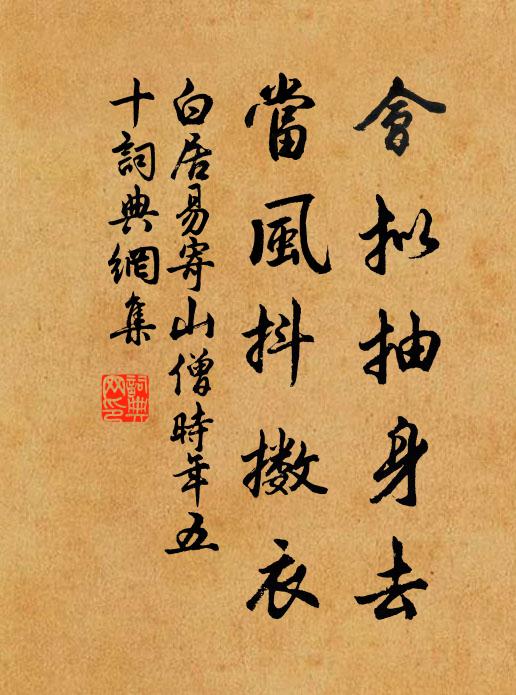 會拟抽身去
當風抖擻衣
白居易寄山僧時年五
十詞典網集
詞典
网印